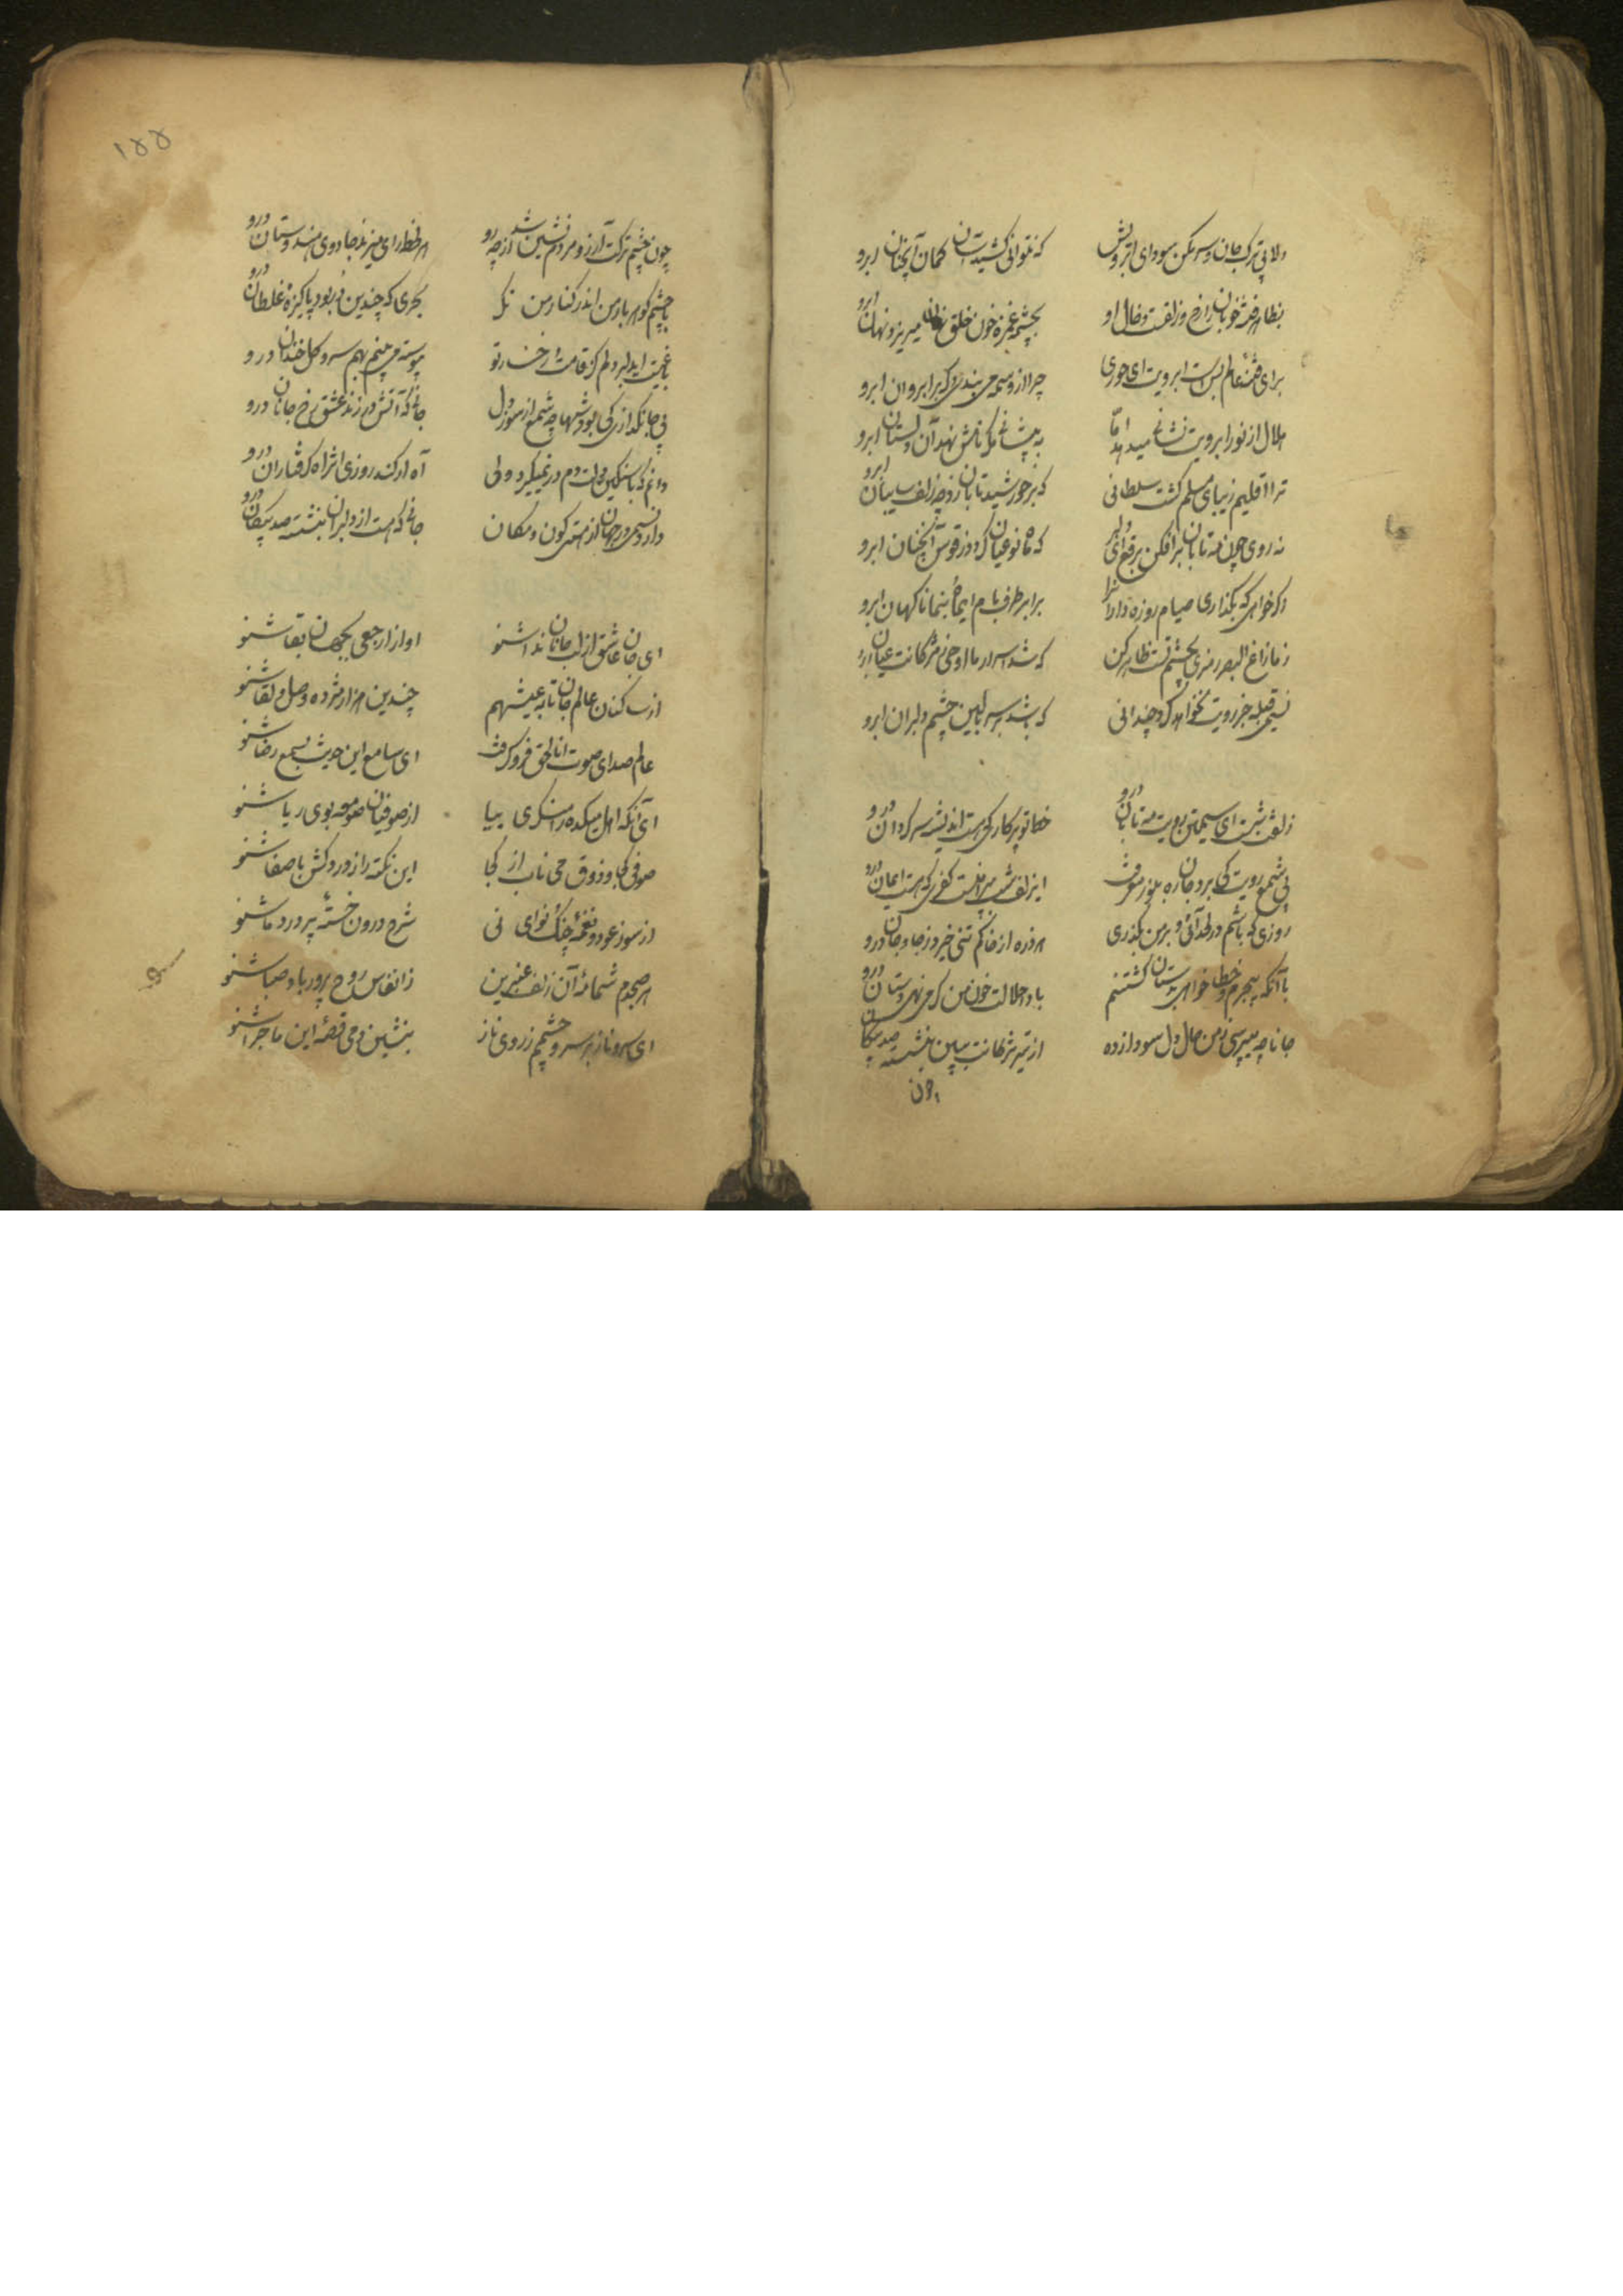 دلا بی ترک جان و سر مکن سودای ابرویش که نتوانی کشیدن آن کمان آنچنان ابرو
بظاهر فتنه خوبان رخ و زلفت و خال او بچشم و غمزه خون خلق میریزد نهان ابرو
برای فتنه عالم بس است ابرویت ای حوری چرا از وسمه می بندی گره بر ابروان ابرو
هلال از نور ابرویت نشانی میدهد اما به پیشانی مکر نامش نهد آن دلستان ابرو
ترا اقلیم زیبای مسلم کشت سلطانی که بر خورشید تابان زد چو زلف سایبان ابرو
ز روی چون مه تابان برافکن برقع ای دلبر که ماه نو عیان کردد ز قوس آنچنان ابرو
اگر خواهی که بگذاری صیام روزه داران را برابر طرف بام ای ماه بنما ناکهان ابرو
ز مازاغ البصر رمزی بچشم مست ظاهر کن که شد اسرار ما اوحی ز مژکانت عیان ابرو
نسیمی قبله جز رویت نخواهد کرد چندانی که باشد بر سر بالین چشم دلبران ابرو
زلفت شبست ای سیمتن رویت مه تابان درو خطا تو پرکار کی است اندیشه سرکردان درو
بی شمع رویت کی برد جان ره بنور معرفت این زلف شب پیراهنت کفری که هست ایمان درو
روزی که باشم در لحد آئی و بر من بگذری هر ذره از خاکم تنی خیزد ز جا و جان درو
با آنکه بیجرم و خطا خواهی بدستان کشتنم بادا حلالت خون من کر می نهی دستان درو
جانا چه میپرسی ز من حال دل سودا زده از تیر مژکانت ببین بنشسته صد پیکان درو
چون
۱۵۵
چون چشم ترکت آرزو مردم نشین شد از چه رو هر لحظه رای میزند جادوی هندوستان درو
با چشم کوهربار من اندر کنار من نکر بحری که چندین در بود پاکیزه غلطان درو
باغیست ای دلبر دلم کز قامت و رخسار تو پیوسته می بینم بهم سرو و کل خندان درو
بی جانکدازی کی بود شبها چو شمع از سوز دل جانی که آتش در زند عشق رخ جانان درو
دانم که با سنکین دلت دم در نمیگیرد ولی آه ار کند روزی اثر آه کرفتاران درو
دارد نسیمی در جهان از هستی کون و مکان جانی که هست از دلبران بنشسته صد پیکان درو
ای جان عاشق از لب جانان ندا شنو اواز ارجعی بجهان بقا شنو
از ساکنان عالم جان تا به عیشهم چندین هزار مژده وصل و لقا شنو
عالم صدای صوت انا الحق فرو کرفت ای سامع این حدیث بسمع رضا شنو
ای آنکه اهل میکده را منکری بیا از صوفیان صومعه بوی ریا شنو
صوفی کجا و ذوق می ناب از کجا این نکته را ز دردکش با صفا شنو
از سوز عود و نغمه چنک و نوای نی شرح درون خسته پر درد ما شنو
هر صبحدم شمامه آن زلف عنبرین ز انفاس روح پرور باد صبا شنو
ای سرو ناز بر سر و چشمم ز روی ناز بنشین دمی و قصه این ماجرا شنو